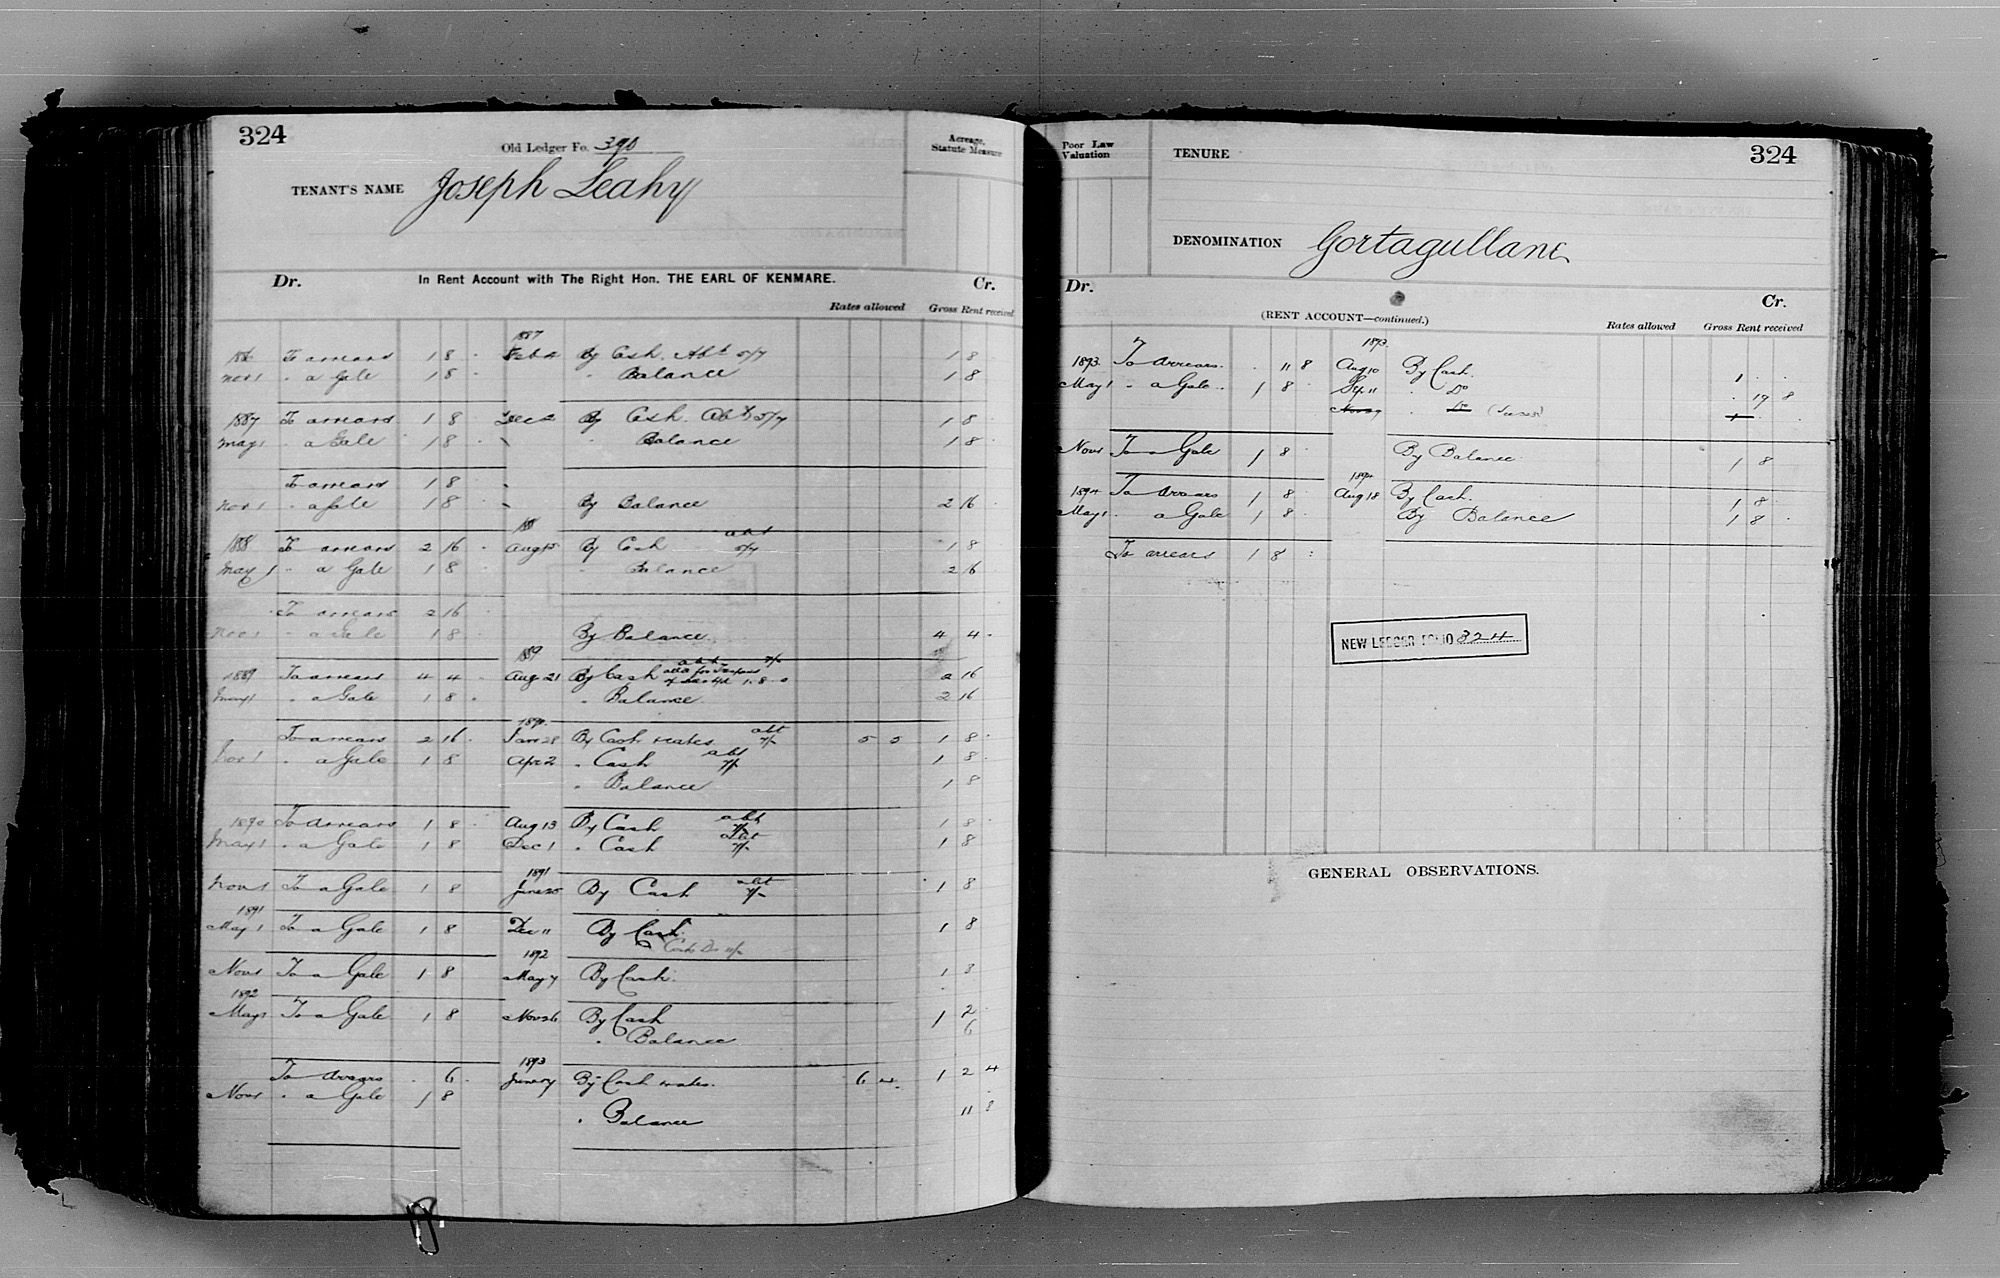 324
Old Ledger Fo. 390
Acreage, Statute Measure
TENANT'S NAME Joseph Leahy
Dr. In Rent Account with The Right Hon. THE EARL OF KENMARE. Cr.
Rates allowed Gross Rent received
1887
To arrears 1 8 Feb By Cash. Abt 5/7 1 8
Nov 1 " a Gale 1 8 " Balance 1 8
1887 To arrears 1 8 Dec By Cash. Abt 5/7 1 8
May 1 " a Gale 1 8 " Balance 1 8
To arrears 1 8
Nov 1 " a Gale 1 8 By Balance 2 16
188 To arrears 2 16 Aug 15 By Cash abt 5/7 1 8
May 1 " a Gale 1 8 " Balance 2 16
To arrears 2 16
Nov 1 " a Gale 1 8 By Balance 4 4
1889
1889 To arrears 4 4 Aug 21 By Cash abt 7/- 1. 8. 0 2 16
May 1 " a Gale 1 8 " Balance 2 16
1890
To arrears 2 16 Jan 28 By Cash & rates abt 7/- 5 5 1 8
Nov 1 " a Gale 1 8 Apr 2 " Cash abt 7/- 1 8
" Balance 1 8
1890 To arrears 1 8 Aug 13 By Cash abt 7/- 1 8
May 1 " a Gale 1 8 Dec 1 " Cash abt 7/- 1 8
1891
Nov 1 To a Gale 1 8 June 25 By Cash abt 7/- 1 8
1891
May 1 To a Gale 1 8 Dec 11 By Cash 1 8
1892
Nov 1 To a Gale 1 8 May 7 By Cash 1 8
1892
May 1 To a Gale 1 8 Nov 26 By Cash 1 2
" Balance 6
1893
To Arrears 6 June 17 By Cash & rates. 6 4 1 2 4
Nov 1 " a Gale 1 8
" Balance 11 8
Poor Law Valuation
TENURE
324
DENOMINATION Gortagullane
Dr. Cr.
(RENT ACCOUNT—continued.)
Rates allowed Gross Rent received
1893
1893 To Arrears. 11 8 Aug 10 By Cash. 1
May 1 " a Gale. 1 8 Sep 11 " Do 17 8
Nov " Do 1
Nov 1 To a Gale 1 8 By Balance 1 8
1894
1894 To Arrears 1 8 Aug 18 By Cash. 1 8
May 1 " a Gale 1 8 By Balance 1 8
To arrears 1 8
NEW LEDGER FOLIO 324
GENERAL OBSERVATIONS.